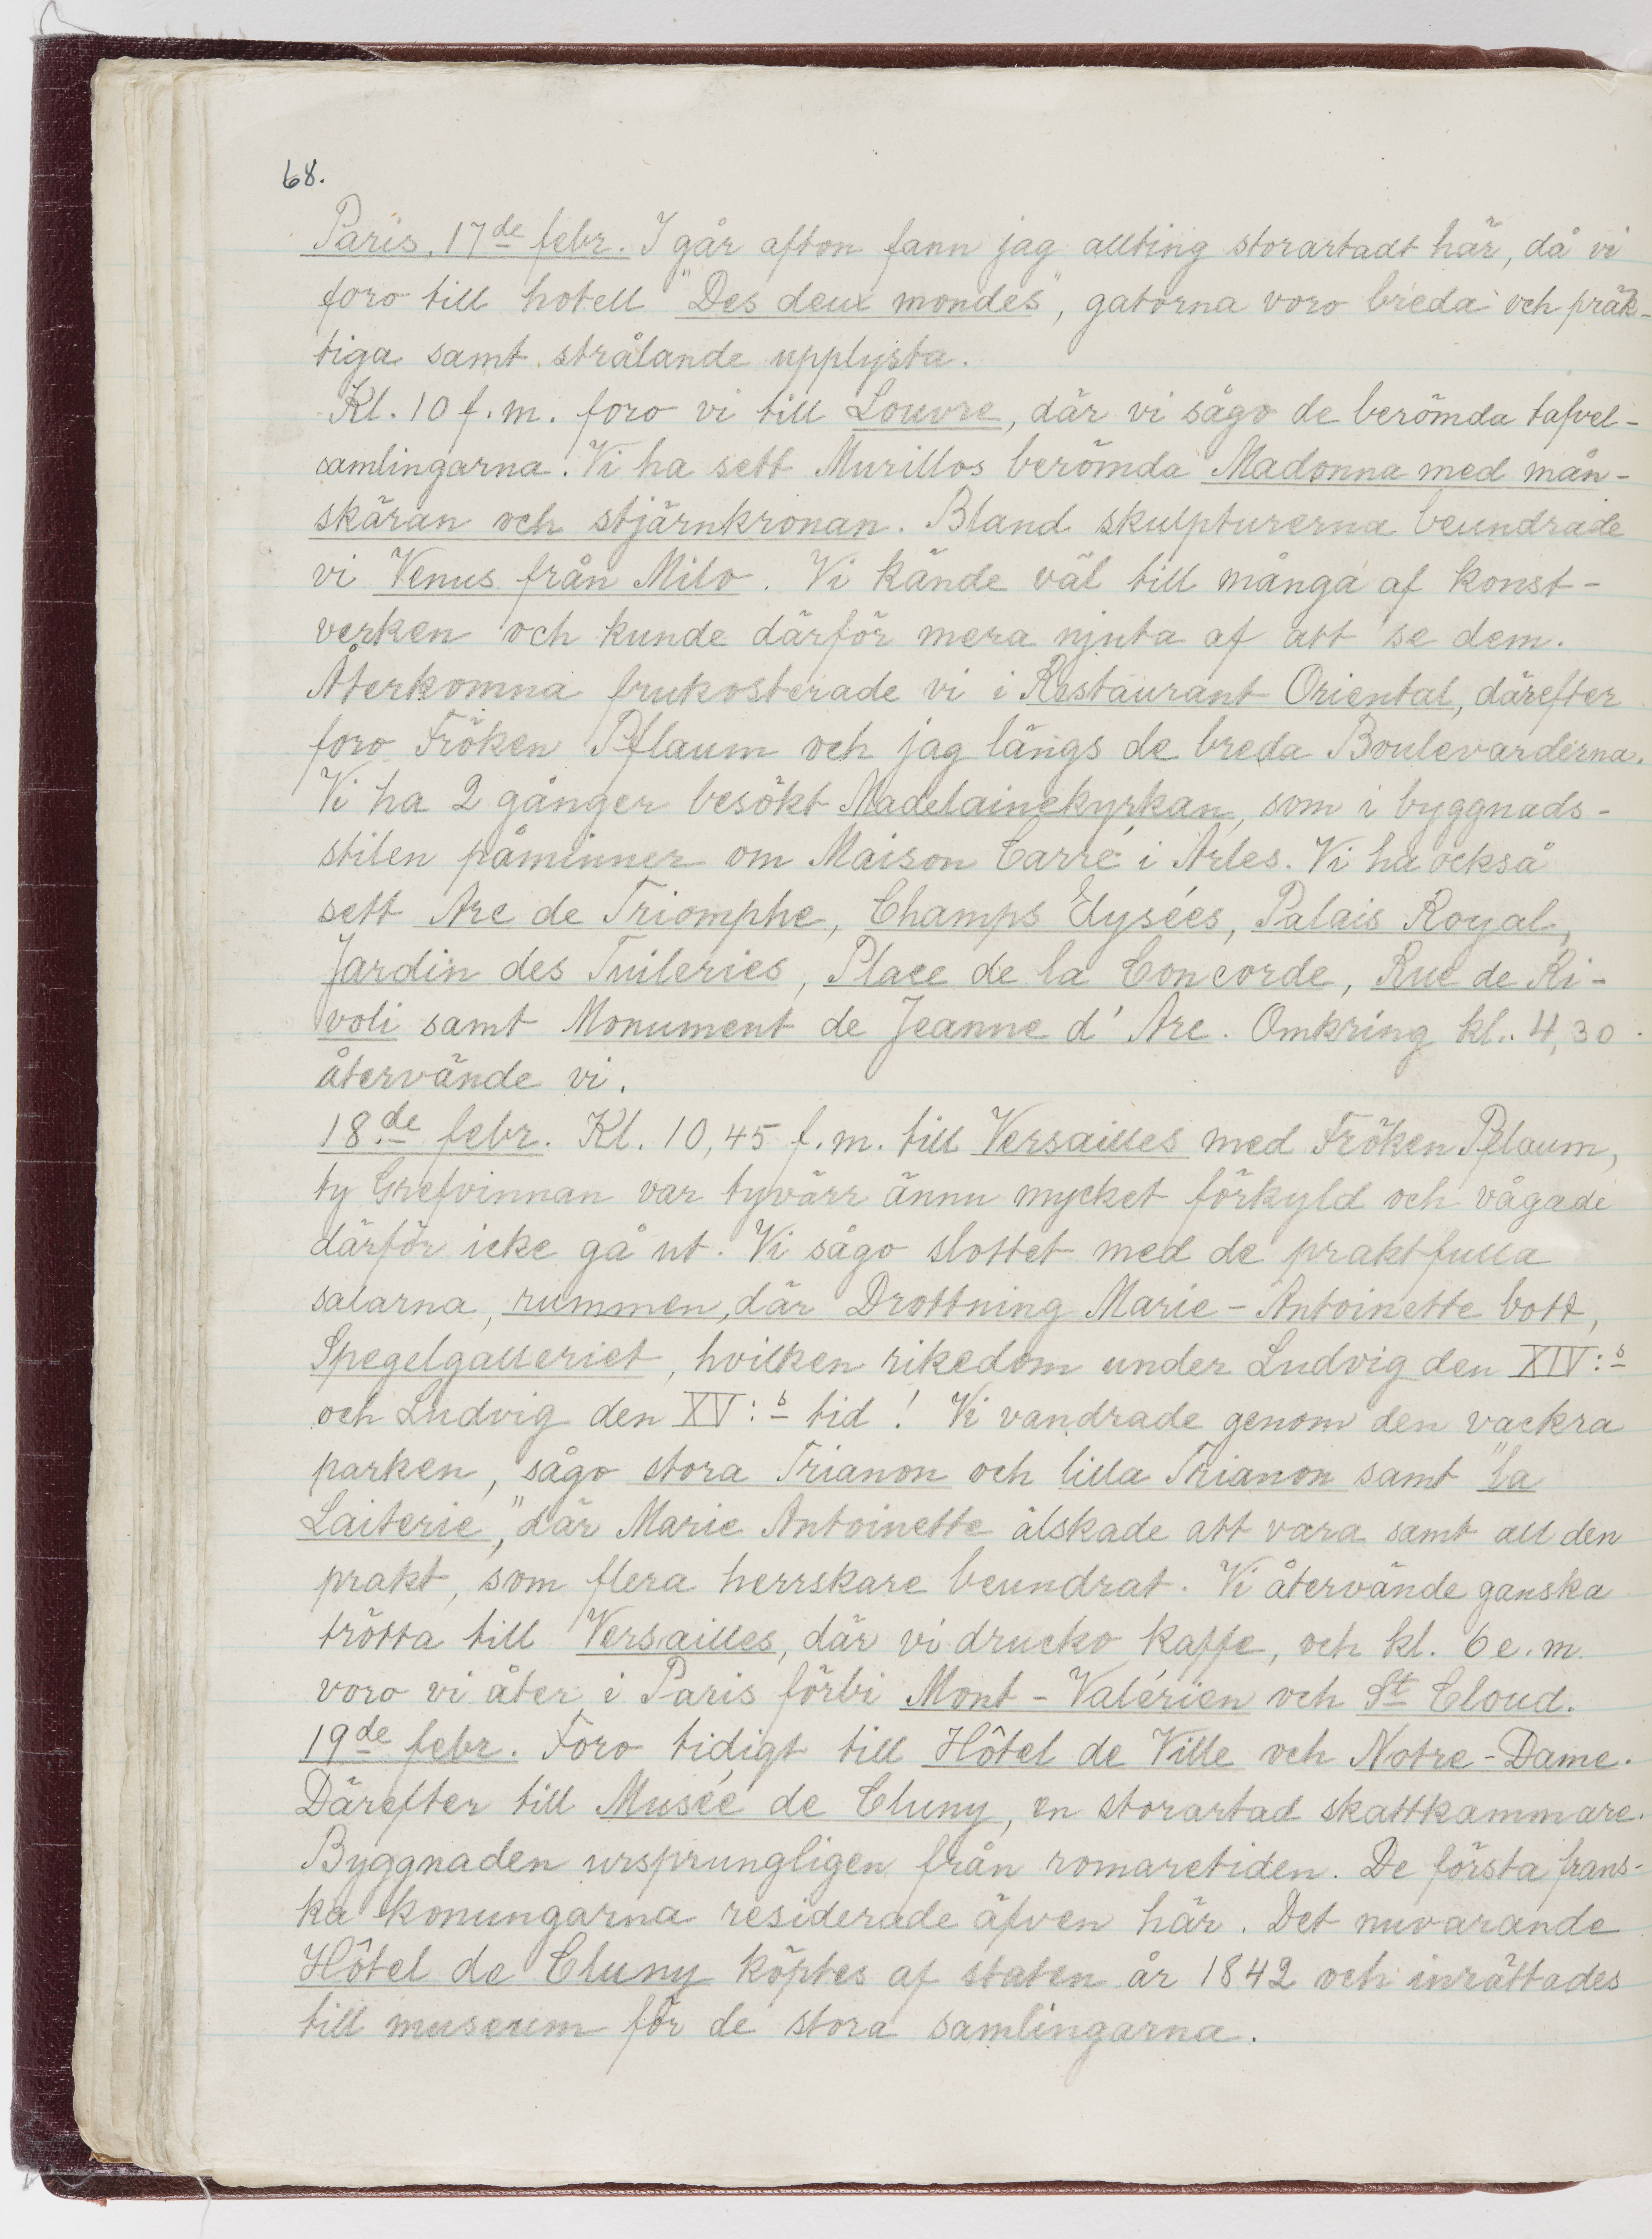 68.
Paris, 17de febr. I går afton fann jag allting storartadt här, då vi
foro till hotell "Des deux mondes", gatorna voro breda och präk-
tiga samt strålande upplysta.
Kl. 10 f.m. foro vi till Louvre, där vi sågo de berömda tafvel-
samlingarna. Vi ha sett Murillos berömda Madonna med mån-
skäran och stjärnkronan. Bland skulpturerna beundrade
vi Venus från Milo. Vi kände väl till många af konst-
verken och kunde därför mera njuta af att se dem.
Återkomna frukosterade vi i Restaurant Oriental, därefter
foro Fröken Pflaum och jag längs de breda Boulevarderna.
Vi ha 2 gånger besökt Madelainekyrkan, som i byggnads-
stilen påminner om Maison Carré i Arles. Vi ha också
sett Arc de Triomphe, Champs Elysées, Palais Royal,
Jardin des Tuileries, Place de la Concorde, Rue de Ri-
voli samt Monument de Jeanne d'Arc. Omkring kl. 4,30
återvände vi.
18de febr. Kl. 10,45 f.m. till Versailles med Fröken Pflaum,
ty Grefvinnan var tyvärr ännu mycket förkyld och vågade
därför icke gå ut. Vi sågo slottet med de praktfulla
salarna, rummen, där Drottning Marie-Antoinette bott,
Spegelgalleriet, hvilken rikedom under Ludvig den XIV:s
och Ludvig den XV:s tid! Vi vandrade genom den vackra
parken, sågo stora Trianon och lilla Trianon samt "la
Laiterie," där Marie Antoinette älskade att vara samt all den
prakt, som flera herrskare beundrat. Vi återvände ganska
trötta till Versailles, där vi drucko kaffe, och kl. 6 e.m.
voro vi åter i Paris förbi Mont-Valérien och St Cloud.
19de febr. Foro tidigt till Hôtel de Ville och Notre-Dame.
Därefter till Musée de Cluny, en storartad skattkammare.
Byggnaden ursprungligen från romaretiden. De första frans-
ka konungarna residerade äfven här. Det nuvarande
Hôtel de Cluny köptes af staten år 1842 och inrättades
till museum för de stora samlingarna.